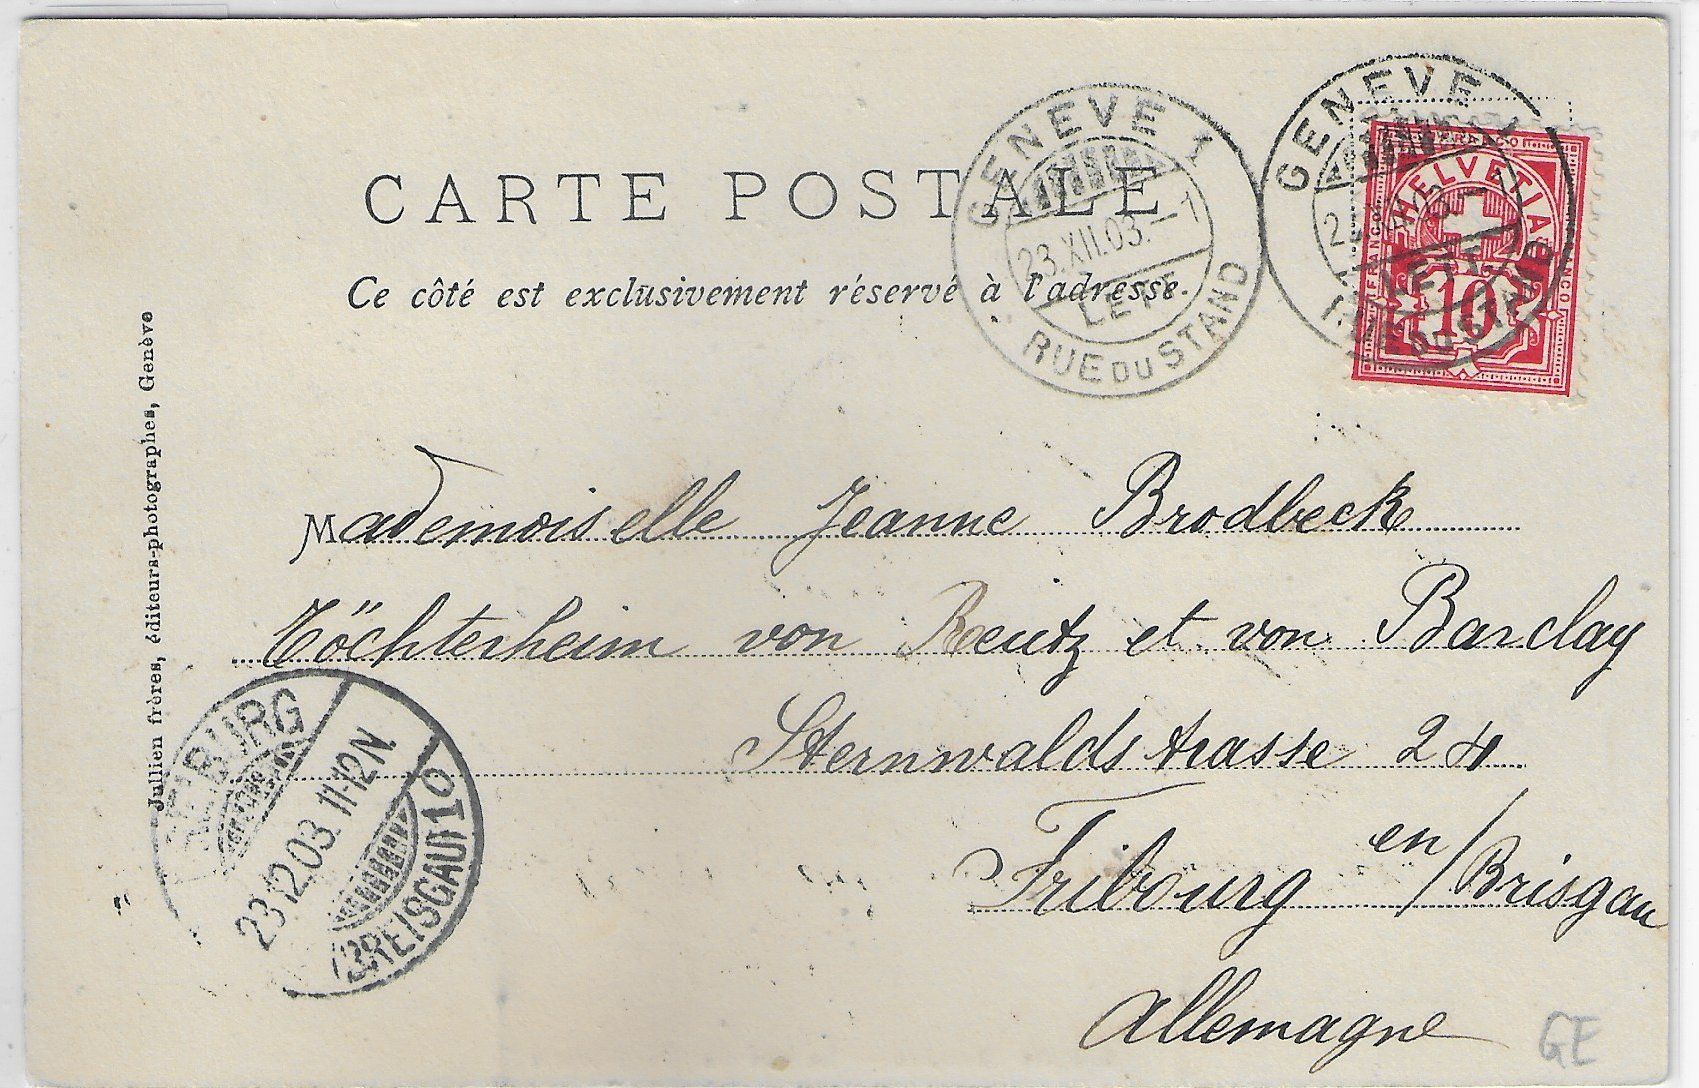 CARTE POSTALE
Ce côté est exclusivement réservé à l'adresse.
GENEVE 1
23.XII.03.–1
LETT.
RUE DU STAND
GENEVE 1
LETT.
RUE DU STAND
FRANCO
HELVETIA
FRANCO
10
Jullien frères, éditeurs-photographes, Genève
Mademoiselle Jeanne Brodbeck
Töchterheim von Reutz et von Barclay
Sternwaldstrasse 24
Fribourg en/Brisgau
Allemagne
23.12.03. 11-12N.
(BREISGAU) 1
GE